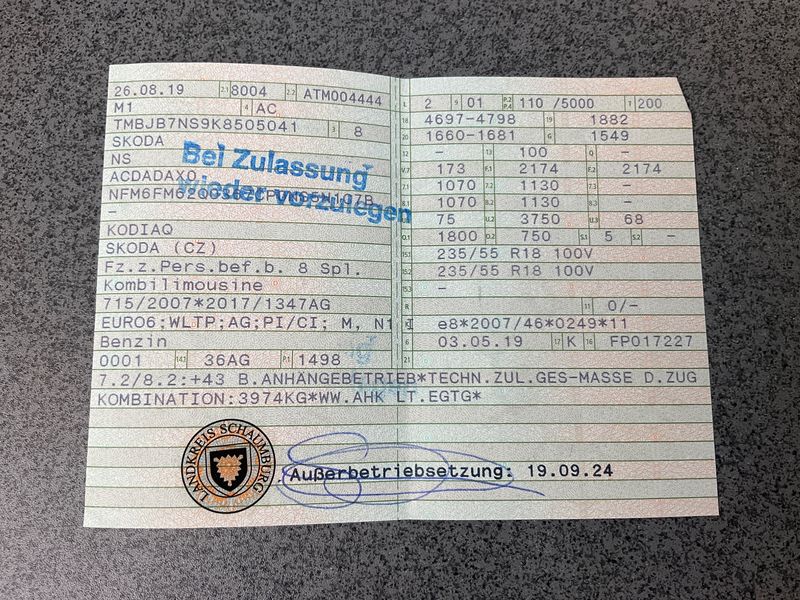 26.08.19 2.1 8004 2.2 ATM004444
M1 4 AC
TMBJB7NS9K8505041 3 8
SKODA
NS
ACDADAX0
-
KODIAQ
SKODA (CZ)
Fz.z.Pers.bef.b. 8 Spl.
Kombilimousine
715/2007*2017/1347AG
EURO6;WLTP;AG;PI/CI; M, N1 I
Benzin
0001 14.1 36AG P.1 1498
Bei Zulassung
wieder vorzulegen
L 2 9 01 P.2 P.4 110 /5000 T 200
18 4697-4798 19 1882
20 1660-1681 G 1549
12 - 13 100 Q -
V.7 173 F.1 2174 F.2 2174
7.1 1070 7.2 1130 7.3 -
8.1 1070 8.2 1130 8.3 -
U.1 75 U.2 3750 U.3 68
O.1 1800 O.2 750 S.1 5 S.2 -
15.1 235/55 R18 100V
15.2 235/55 R18 100V
15.3 -
R 11 0/-
K e8*2007/46*0249*11
6 03.05.19 17 K 16 FP017227
21
7.2/8.2:+43 B.ANHÄNGEBETRIEB*TECHN.ZUL.GES-MASSE D.ZUG
KOMBINATION:3974KG*WW.AHK LT.EGTG*
LANDKREIS SCHAUMBURG
Außerbetriebsetzung: 19.09.24